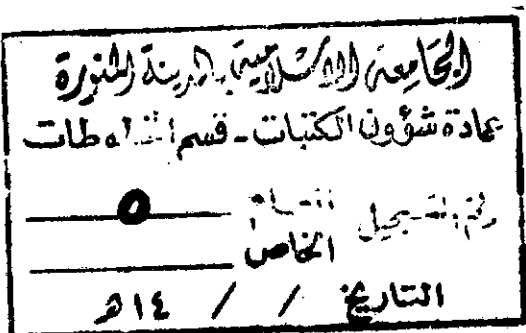 الجامعة الإسلامية بالمدينة المنورة
عمادة شؤون المكتبات - قسم المخطوطات
رقم التسجيل العام ٥
الخاص
التاريخ / / ١٤هـ